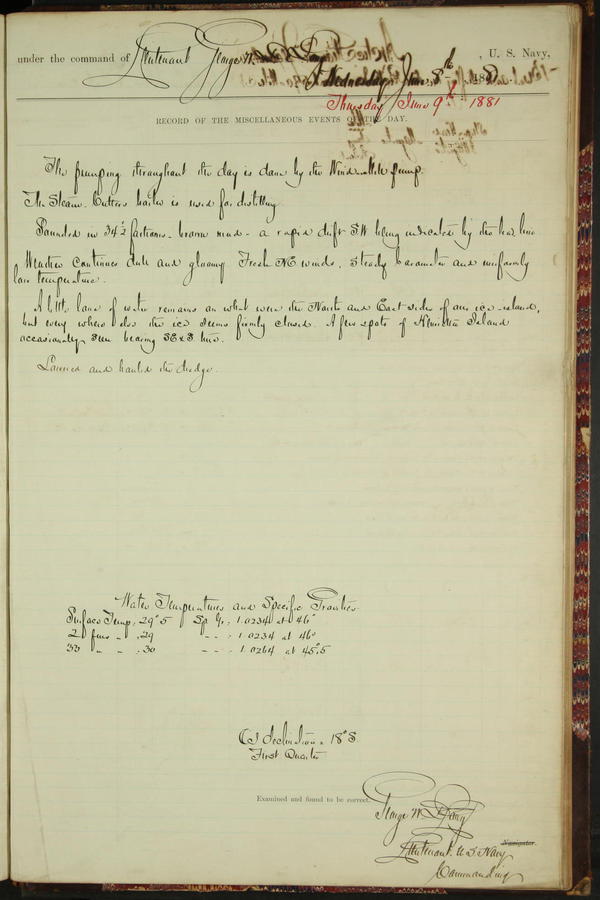 under the command of Lieutenant George W. De Long, U. S. Navy,
Wednesday June 8th 1881
Thursday June 9th 1881
RECORD OF THE MISCELLANEOUS EVENTS OF THE DAY.
The pumping throughout the day is done by the Wind-mill pump.
The Steam Cutters boiler is used for distilling.
Sounded in 34 1/2 fathoms - brown mud - a rapid drift SW being indicated by the lead line
Weather continues dull and gloomy. Fresh NE winds, steady barometer and uniformly
low temperature.
A little lane of water remains on what were the North and East sides of our ice-island,
but every where else the ice seems firmly closed. A few spots of Henrietta Island
occasionally seen bearing
Lowered and hauled the dredge.
Water Temperatures and Specific Gravities
Surface Temp. 29°5 Sp Gr. 1.0234 at 46°
2 fms " 29 " " 1.0234 at 46°
33 " " 30 " " 1.0264 at 45°.5
declination 18° S.
First Quarter
Examined and found to be correct.
George W. De Long
Lieutenant U.S. Navy Navigator.
Commanding